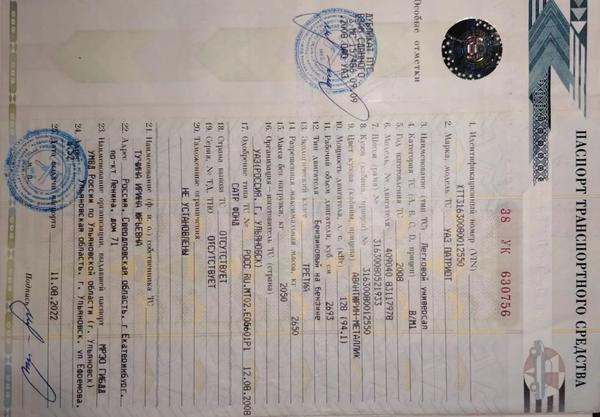 ПАСПОРТ ТРАНСПОРТНОГО СРЕДСТВА
38 УК 630756
1. Идентификационный номер (VIN) XTT31630080012550
2. Марка, модель ТС УАЗ ПАТРИОТ
3. Наименование (тип ТС) Легковой универсал
4. Категория ТС (A, B, C, D, прицеп) B/M1
5. Год изготовления ТС 2008
6. Модель, № двигателя 409040 83117978
7. Шасси (рама) № 31630080521933
8. Кузов (кабина, прицеп) № 31630080012550
9. Цвет кузова (кабины, прицепа) АВАНТЮРИН-МЕТАЛЛИК
10. Мощность двигателя, л. с. (кВт) 128 (94.1)
11. Рабочий объем двигателя, куб. см 2693
12. Тип двигателя Бензиновый на бензине
13. Экологический класс ТРЕТИЙ
14. Разрешенная максимальная масса, кг 2650
15. Масса без нагрузки, кг 2050
16. Организация - изготовитель ТС (страна)
УАЗ(РОССИЯ, Г. УЛЬЯНОВСК)
17. Одобрение типа ТС № РОСС RU.МТ02.Е06601Р1 12.08.2008
САТР ФОНД
18. Страна вывоза ТС ОТСУТСТВУЕТ
19. Серия, № ТД, ТПО ОТСУТСТВУЕТ
20. Таможенные ограничения
НЕ УСТАНОВЛЕНЫ
21. Наименование (ф. и. о.) собственника ТС
ТУЧИНА ИРИНА ЮРЬЕВНА
22. Адрес Россия, Свердловская область, г Екатеринбург,
пр-кт Ленина, дом 71
23. Наименование организации, выдавшей паспорт МРЭО ГИБДД
УМВД России по Ульяновской области (г. Ульяновск)
24. Адрес Ульяновская область, г. Ульяновск, ул Ефремова,
25. Дата выдачи паспорта 11.08.2022
Подпись
Особые отметки
ДУБЛИКАТ ПТС
ВЗАМ СДАННОГО
2008 ОАО УАЗ